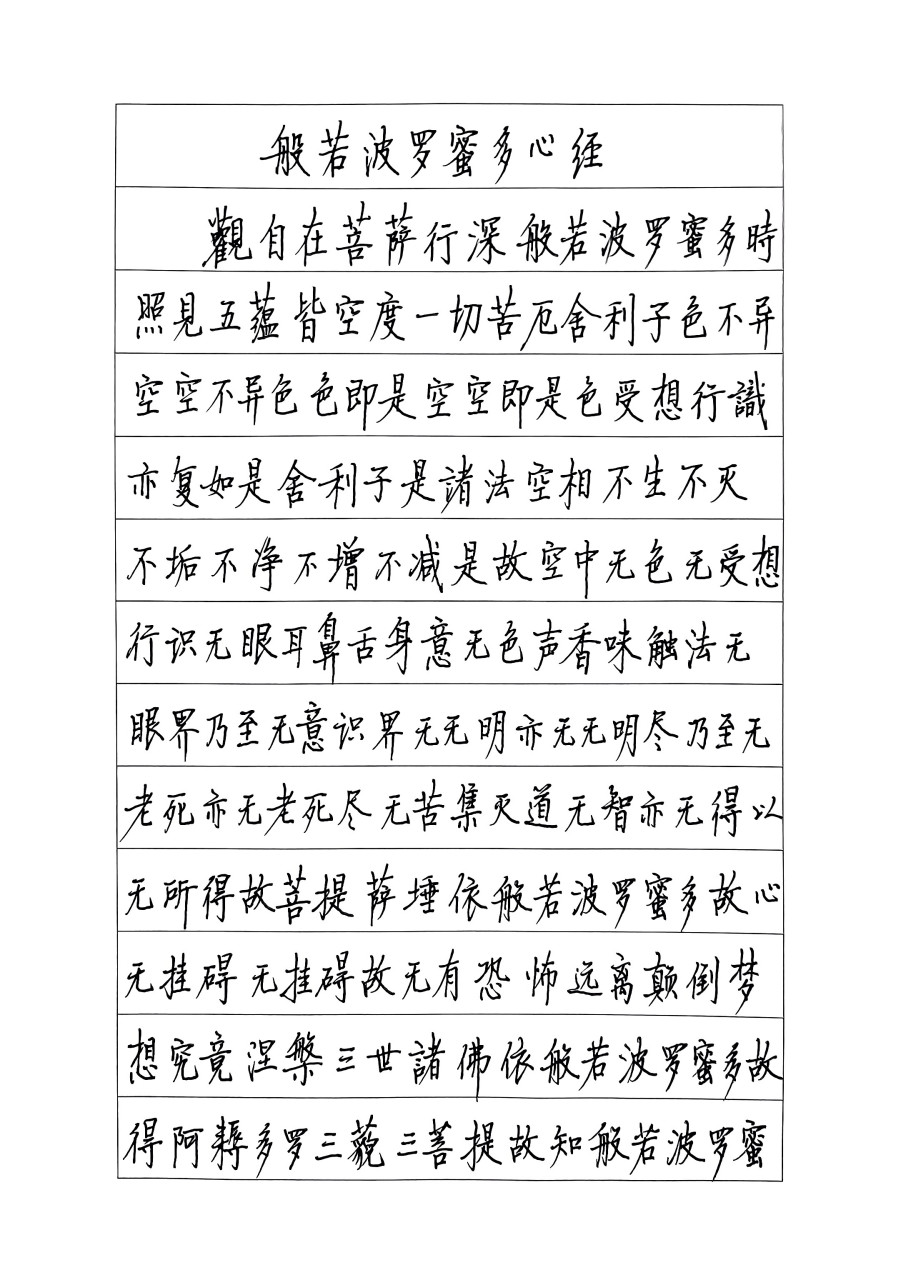 般若波罗蜜多心经
觀自在菩萨行深般若波罗蜜多時
照見五蕴皆空度一切苦厄舍利子色不异
空空不异色色即是空空即是色受想行識
亦复如是舍利子是諸法空相不生不灭
不垢不净不增不减是故空中无色无受想
行识无眼耳鼻舌身意无色声香味触法无
眼界乃至无意识界无无明亦无无明尽乃至无
老死亦无老死尽无苦集灭道无智亦无得以
无所得故菩提萨埵依般若波罗蜜多故心
无挂碍无挂碍故无有恐怖远离颠倒梦
想究竟涅槃三世諸佛依般若波罗蜜多故
得阿耨多罗三藐三菩提故知般若波罗蜜